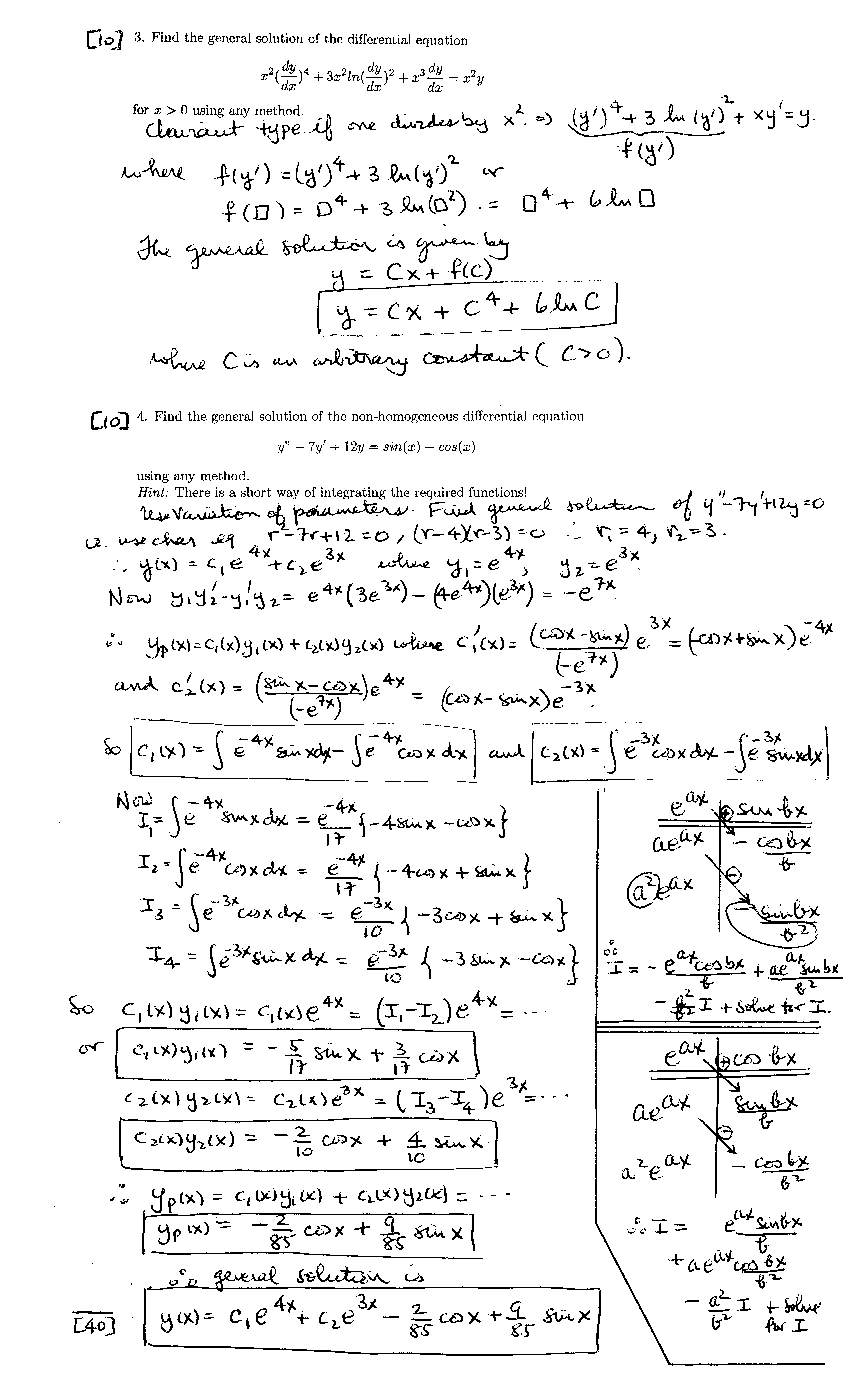 [10] 3. Find the general solution of the differential equation
x²(dy/dx)⁴ + 3x²ln(dy/dx)² + x³ dy/dx = x²y
for x > 0 using any method.
Clairaut type if one divides by x² ⇒ (y')⁴ + 3 ln (y')² + xy' = y.
f(y')
where f(y') = (y')⁴ + 3 ln(y')² or
f(□) = □⁴ + 3 ln(□²) . = □⁴ + 6 ln □
The general solution is given by
y = Cx + f(C)
y = Cx + C⁴ + 6 ln C
where C is an arbitrary constant ( C>0 ).
[10] 4. Find the general solution of the non-homogeneous differential equation
y'' − 7y' + 12y = sin(x) − cos(x)
using any method.
Hint: There is a short way of integrating the required functions!
Use Variation of parameters. Find general solution of y''-7y'+12y=0
ie. use char eq r²-7r+12=0, (r-4)(r-3)=0 ∴ r₁=4, r₂=3.
∴ y(x) = c₁e^{4x} + c₂e^{3x} where y₁=e^{4x}, y₂=e^{3x}.
Now y₁y₂'-y₁'y₂ = e^{4x}(3e^{3x}) - (4e^{4x})(e^{3x}) = -e^{7x}
∴ yp(x)=c₁(x)y₁(x) + c₂(x)y₂(x) where c₁'(x) = (cosx-sinx)/(-e^{7x}) e^{3x} = (-cosx+sinx)e^{-4x}
and c₂'(x) = (sinx-cosx)/(-e^{7x}) e^{4x} = (cosx-sinx)e^{-3x}.
So c₁(x) = ∫e^{-4x}sinxdx - ∫e^{-4x}cosxdx and c₂(x) = ∫e^{-3x}cosxdx - ∫e^{-3x}sinxdx
Now
I₁ = ∫e^{-4x}sinxdx = e^{-4x}/17 {-4sinx - cosx}
I₂ = ∫e^{-4x}cosxdx = e^{-4x}/17 {-4cosx + sinx}
I₃ = ∫e^{-3x}cosxdx = e^{-3x}/10 {-3cosx + sinx}
I₄ = ∫e^{-3x}sinxdx = e^{-3x}/10 {-3sinx - cosx}
So c₁(x)y₁(x) = c₁(x)e^{4x} = (I₁-I₂)e^{4x} = ...
or c₁(x)y₁(x) = -5/17 sinx + 3/17 cosx
c₂(x)y₂(x) = c₂(x)e^{3x} = (I₃-I₄)e^{3x} = ...
c₂(x)y₂(x) = -2/10 cosx + 4/10 sinx
∴ yp(x) = c₁(x)y₁(x) + c₂(x)y₂(x) = ...
yp(x) = -2/85 cosx + 9/85 sinx
∴ general solution is
[40] y(x) = c₁e^{4x} + c₂e^{3x} - 2/85 cosx + 9/85 sinx
e^{ax} ⊕ sinbx
ae^{ax} - cosbx/b
⊖
a²e^{ax} - sinbx/b²
∴ I = - e^{ax}cosbx/b + ae^{ax}sinbx/b²
- a²/b² I + solve for I.
e^{ax} ⊕ cosbx
ae^{ax} sinbx/b
⊖
a²e^{ax} - cosbx/b²
∴ I = e^{ax}sinbx/b
+ ae^{ax}cosbx/b²
- a²/b² I + solve
for I